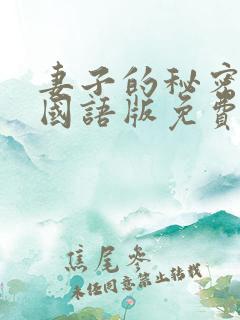 妻子的秘密
國語版免費
焦尾參
未任同意禁止转载